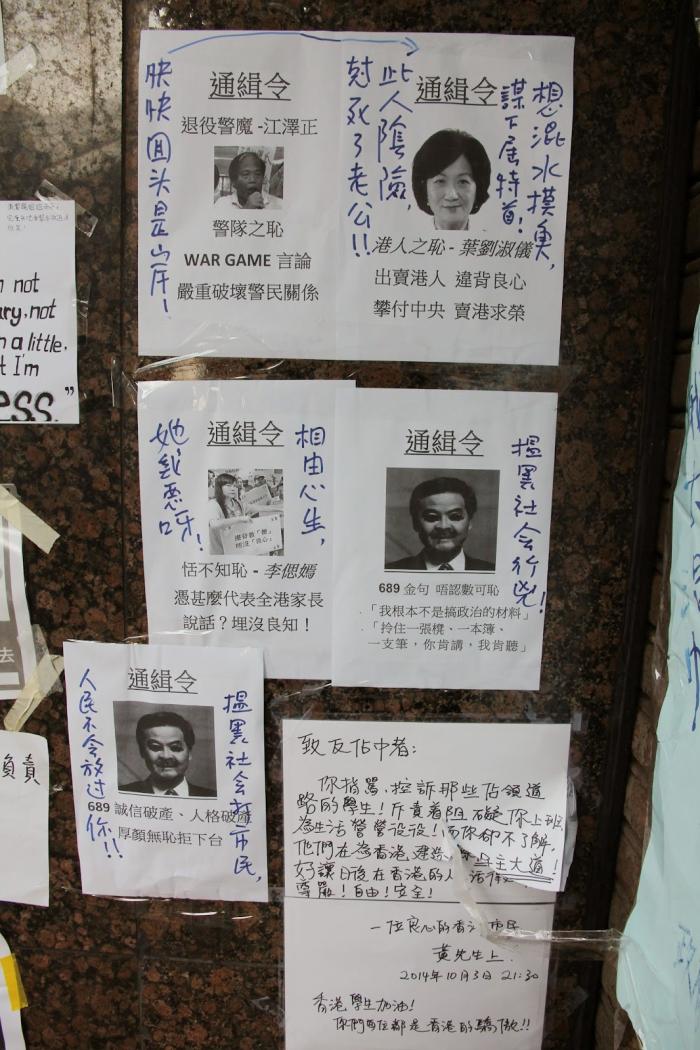 通緝令
退役警魔 -江澤正
警隊之恥
WAR GAME 言論
嚴重破壞警民關係
快快回头是岸!
通緝令
港人之恥 - 葉劉淑儀
出賣港人 違背良心
攀付中央 賣港求榮
想混水摸魚,
謀下屆特首!
此人陰險,
尅死了老公!!
通緝令
恬不知恥 - 李偲嫣
憑甚麼代表全港家長
說話？埋沒良知！
相由心生,
她認惡呀!
通緝令
689 金句 唔認數可恥
「我根本不是搞政治的材料」
「拎住一張櫈、一本簿、
一支筆，你肯講，我肯聽」
搵黑社会行兇!
通緝令
689 誠信破產、人格破產
厚顏無恥拒下台
搵黑社會打市民,
人民不会放过你!!
致反佔中者:
你指罵,控訴那些佔領道
路的學生!斥責着阻礙你上班,
為生活營營役役!而你卻不了解,
他們在為香港建造 主大道!
好讓日後在香港的人 活
尊嚴!自由!安全!
一位良心的香港市民
黄先生上
2014年10月3日 21:30
香港學生加油!
你們每位都是香港的驕傲!!
n not
ary, not
n a little.
t I'm
ess."
去
負責